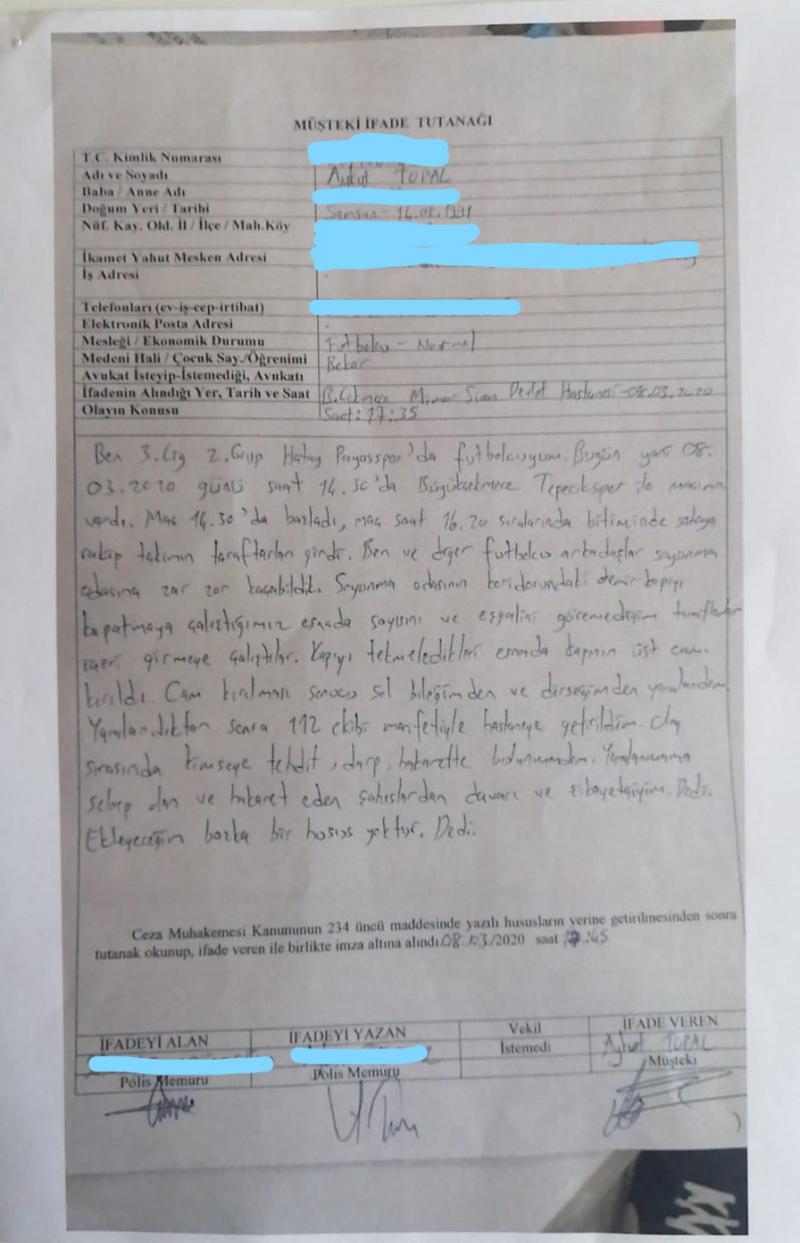 MÜŞTEKİ İFADE TUTANAĞI
T.C. Kimlik Numarası
Adı ve Soyadı Aykut TOPAL
Baba / Anne Adı
Doğum Yeri / Tarihi Samsun - 16.08.1991
Nüf. Kay. Old. İl / İlçe / Mah.Köy
İkamet Yahut Mesken Adresi
İş Adresi -
Telefonları (ev-iş-cep-irtibat)
Elektronik Posta Adresi -
Mesleği / Ekonomik Durumu Futbolcu - Normal
Medeni Hali / Çocuk Say./Öğrenimi Bekar
Avukat İsteyip-İstemediği, Avukatı
İfadenin Alındığı Yer, Tarih ve Saat B.Çekmece Mimar Sinan Devlet Hastanesi - 08.03.2020
Olayın Konusu Saat: 17:35
Ben 3.Lig 2.Grup Hatay Payasspor'da futbolcuyum. Bugün yani 08.
03.2020 günü saat 14.30'da Büyükçekmece Tepecikspor ile maçımız
vardı. Maç 14.30'da başladı, maç saat 16.20 sıralarında bitiminde sahaya
rakip takımın taraftarları girdi. Ben ve diğer futbolcu arkadaşlar soyunma
odasına zar zor kaçabildik. Soyunma odasının koridorundaki demir kapıyı
kapatmaya çalıştığımız esnada sayısını ve eşgalini göremediğim taraftarlar
içeri girmeye çalıştılar. Kapıyı tekmeledikleri esnada kapının üst camı
kırıldı. Cam kırılması sonucu sol bileğimden ve dirseğimden yaralandım.
Yaralandıktan sonra 112 ekibi marifetiyle hastaneye getirildim. Olay
sırasında kimseye tehdit, darp, hakarette bulunmadım. Yaralanmama
sebep olan ve hakaret eden şahıslardan davacı ve şikayetçiyim. Dedi.
Ekleyeceğim başka bir husus yoktur. Dedi.
Ceza Muhakemesi Kanununun 234 üncü maddesinde yazılı hususların yerine getirilmesinden sonra
tutanak okunup, ifade veren ile birlikte imza altına alındı 08.03/2020 saat :45
İFADEYİ ALAN İFADEYİ YAZAN Vekil İFADE VEREN
İstemedi Aykut TOPAL
Polis Memuru Polis Memuru Müşteki